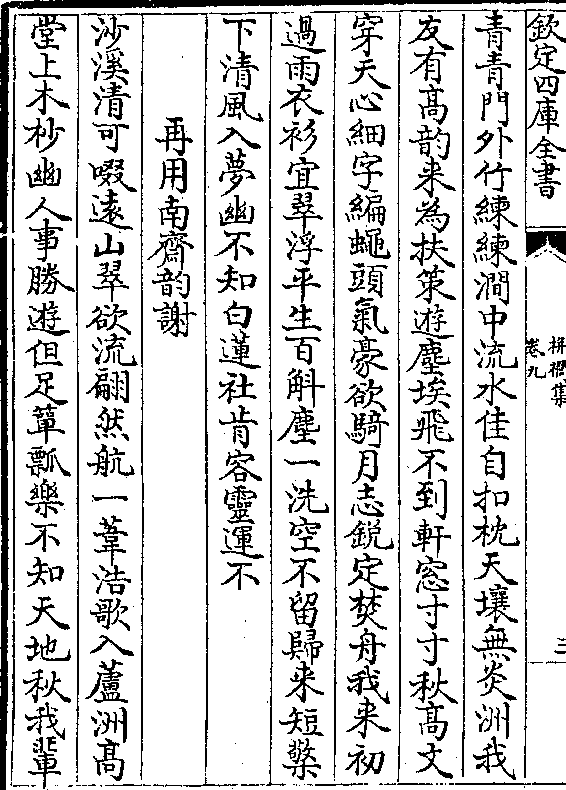 欽定四庫全書
栟櫚集
卷九
三
青青門外竹練練澗中流水佳自扣枕天壤無炎洲我
友有高韵来為扶策遊塵埃飛不到軒窓寸寸秋高文
穿天心細字編蠅頭氣豪欲騎月志鋭定焚舟我来初
過雨衣衫宜翠浮平生百斛塵一洗空不留歸来短檠
下清風入夢幽不知白蓮社肯容靈運不
再用南齋韵謝
沙溪清可啜遠山翠欲流翩然航一葦浩歌入蘆洲高
堂上木杪幽人事勝遊但足簞瓢樂不知天地秋我輩